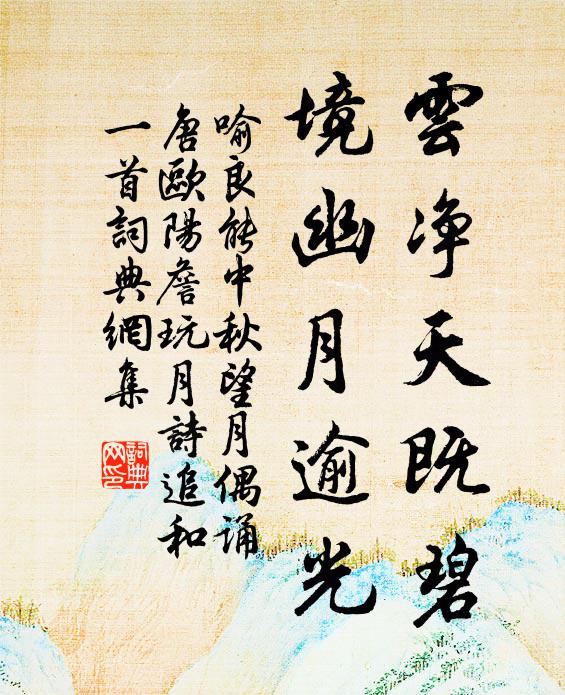 雲净天既碧
境幽月逾光
喻良能中秋望月偶誦
唐歐陽詹玩月詩追和
一首詞典網集
詞典
网印